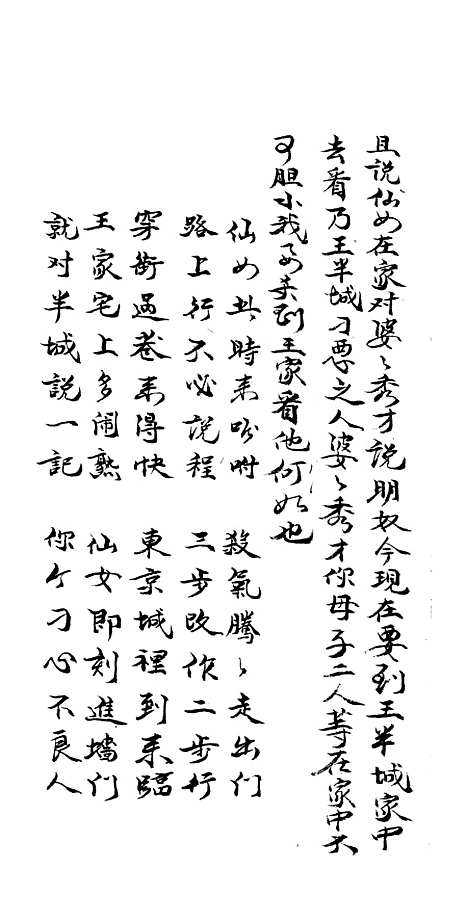 且說仙女在家对婆〻秀才說明奴今現在要到王半城家中
去看乃王半城刁惡之人婆〻秀才你母子二人等在家中不
可胆小我要去到王家看他何如也
仙女此時来吩咐 殺氣騰〻走出门
路上行不必說程 三步改作二步行
穿街過巷来得快 東京城裡到来臨
王家宅上多闹熱 仙女即刻進墻门
就对半城說一記 你个刁心不良人